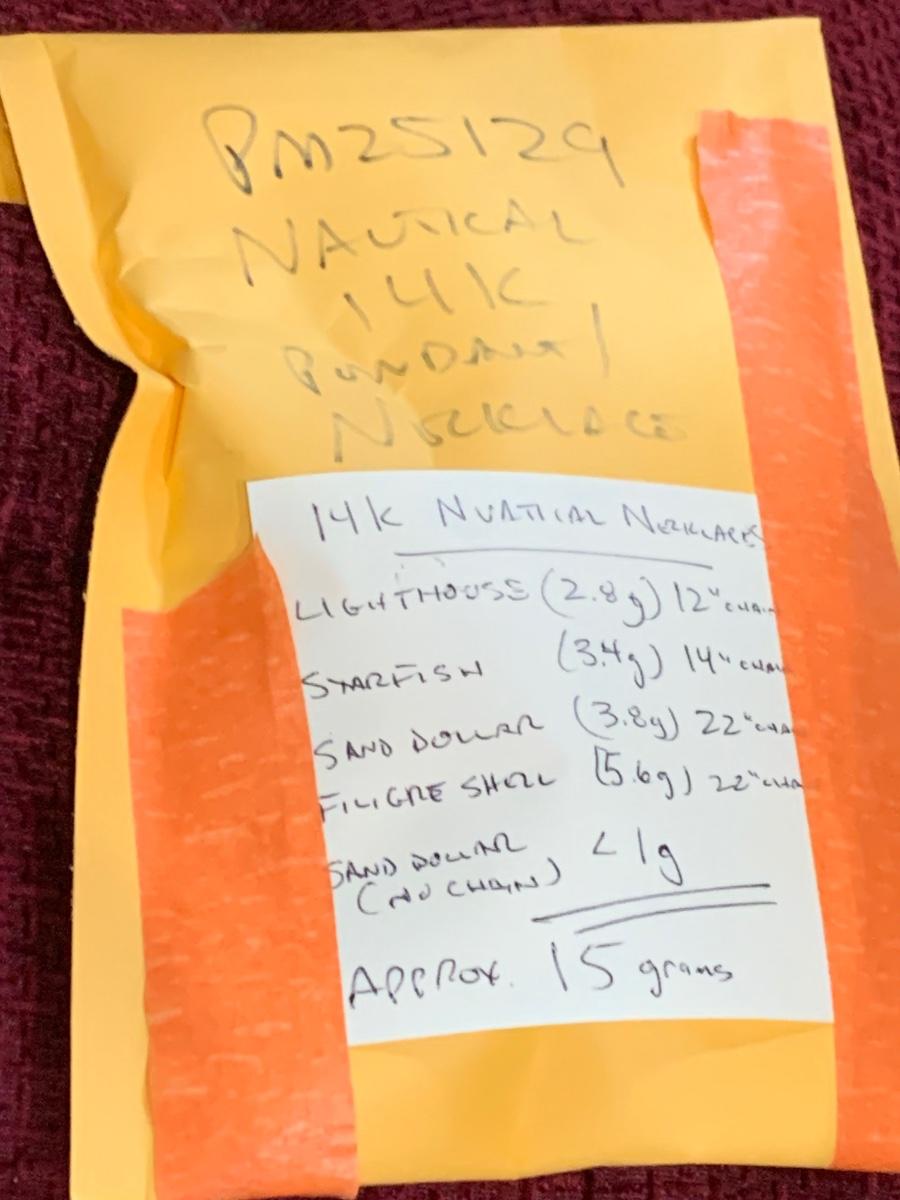 PM25129
NAUTICAL
14K
PENDANT/
NECKLACE
14K NUATICAL NECKLACES
LIGHTHOUSE (2.8g) 12" CHAIN
STARFISH (3.4g) 14" CHAI
SAND DOLLAR (3.8g) 22" CHA
FILIGRE SHELL (5.6g) 22" CHA
SAND DOLLAR < 1g
(NO CHAIN)
APPROX. 15 grams